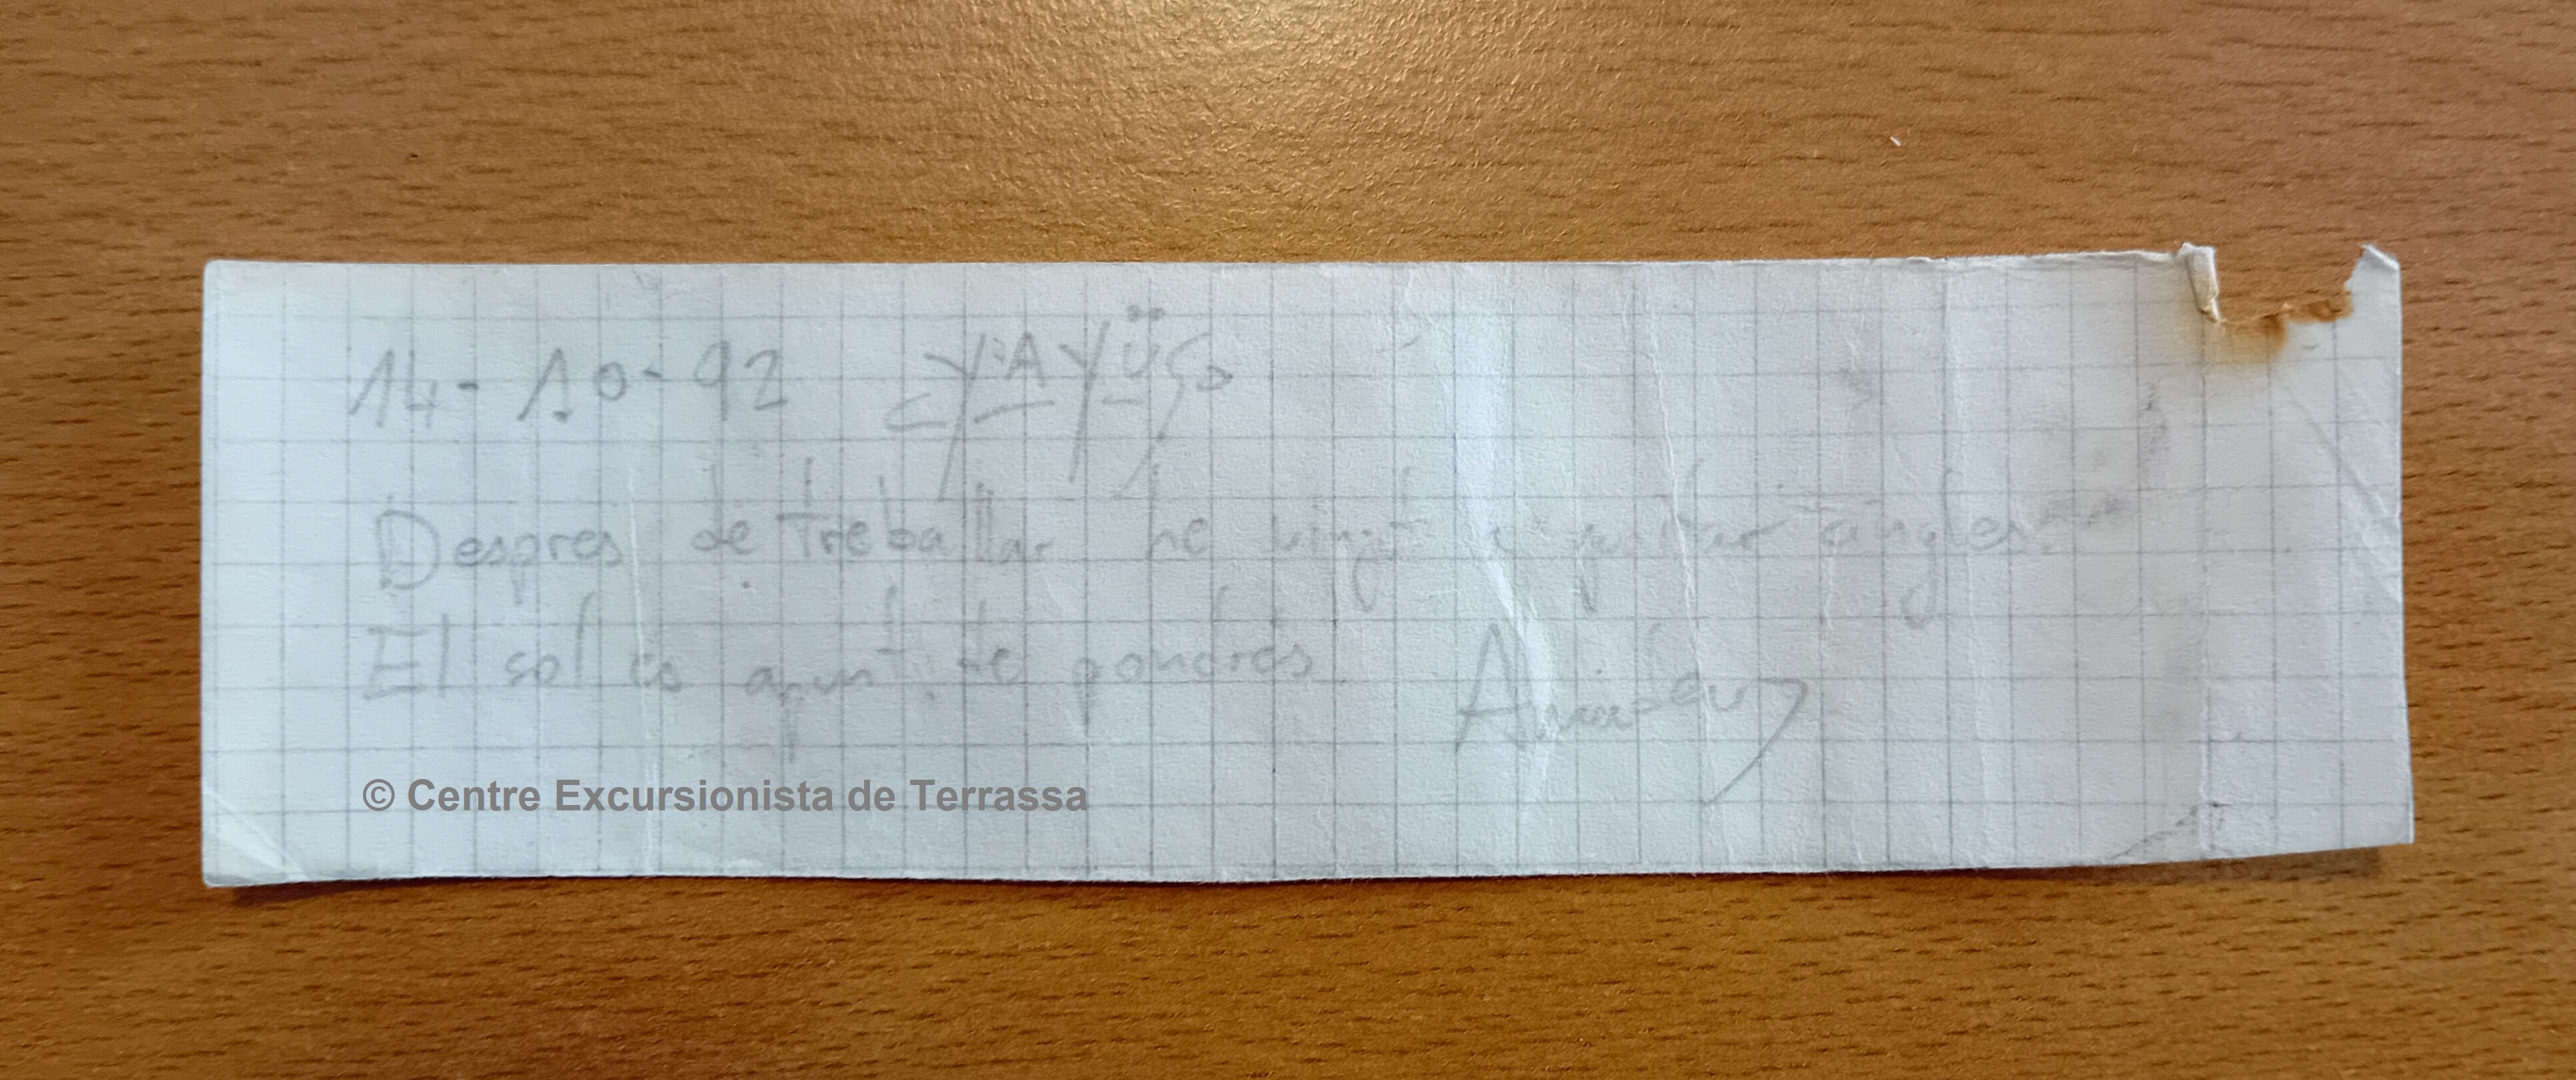 14-10-92 YAYÜS
Despres de Treballar he vingut a
El sol es apunt de pondres
© Centre Excursionista de Terrassa